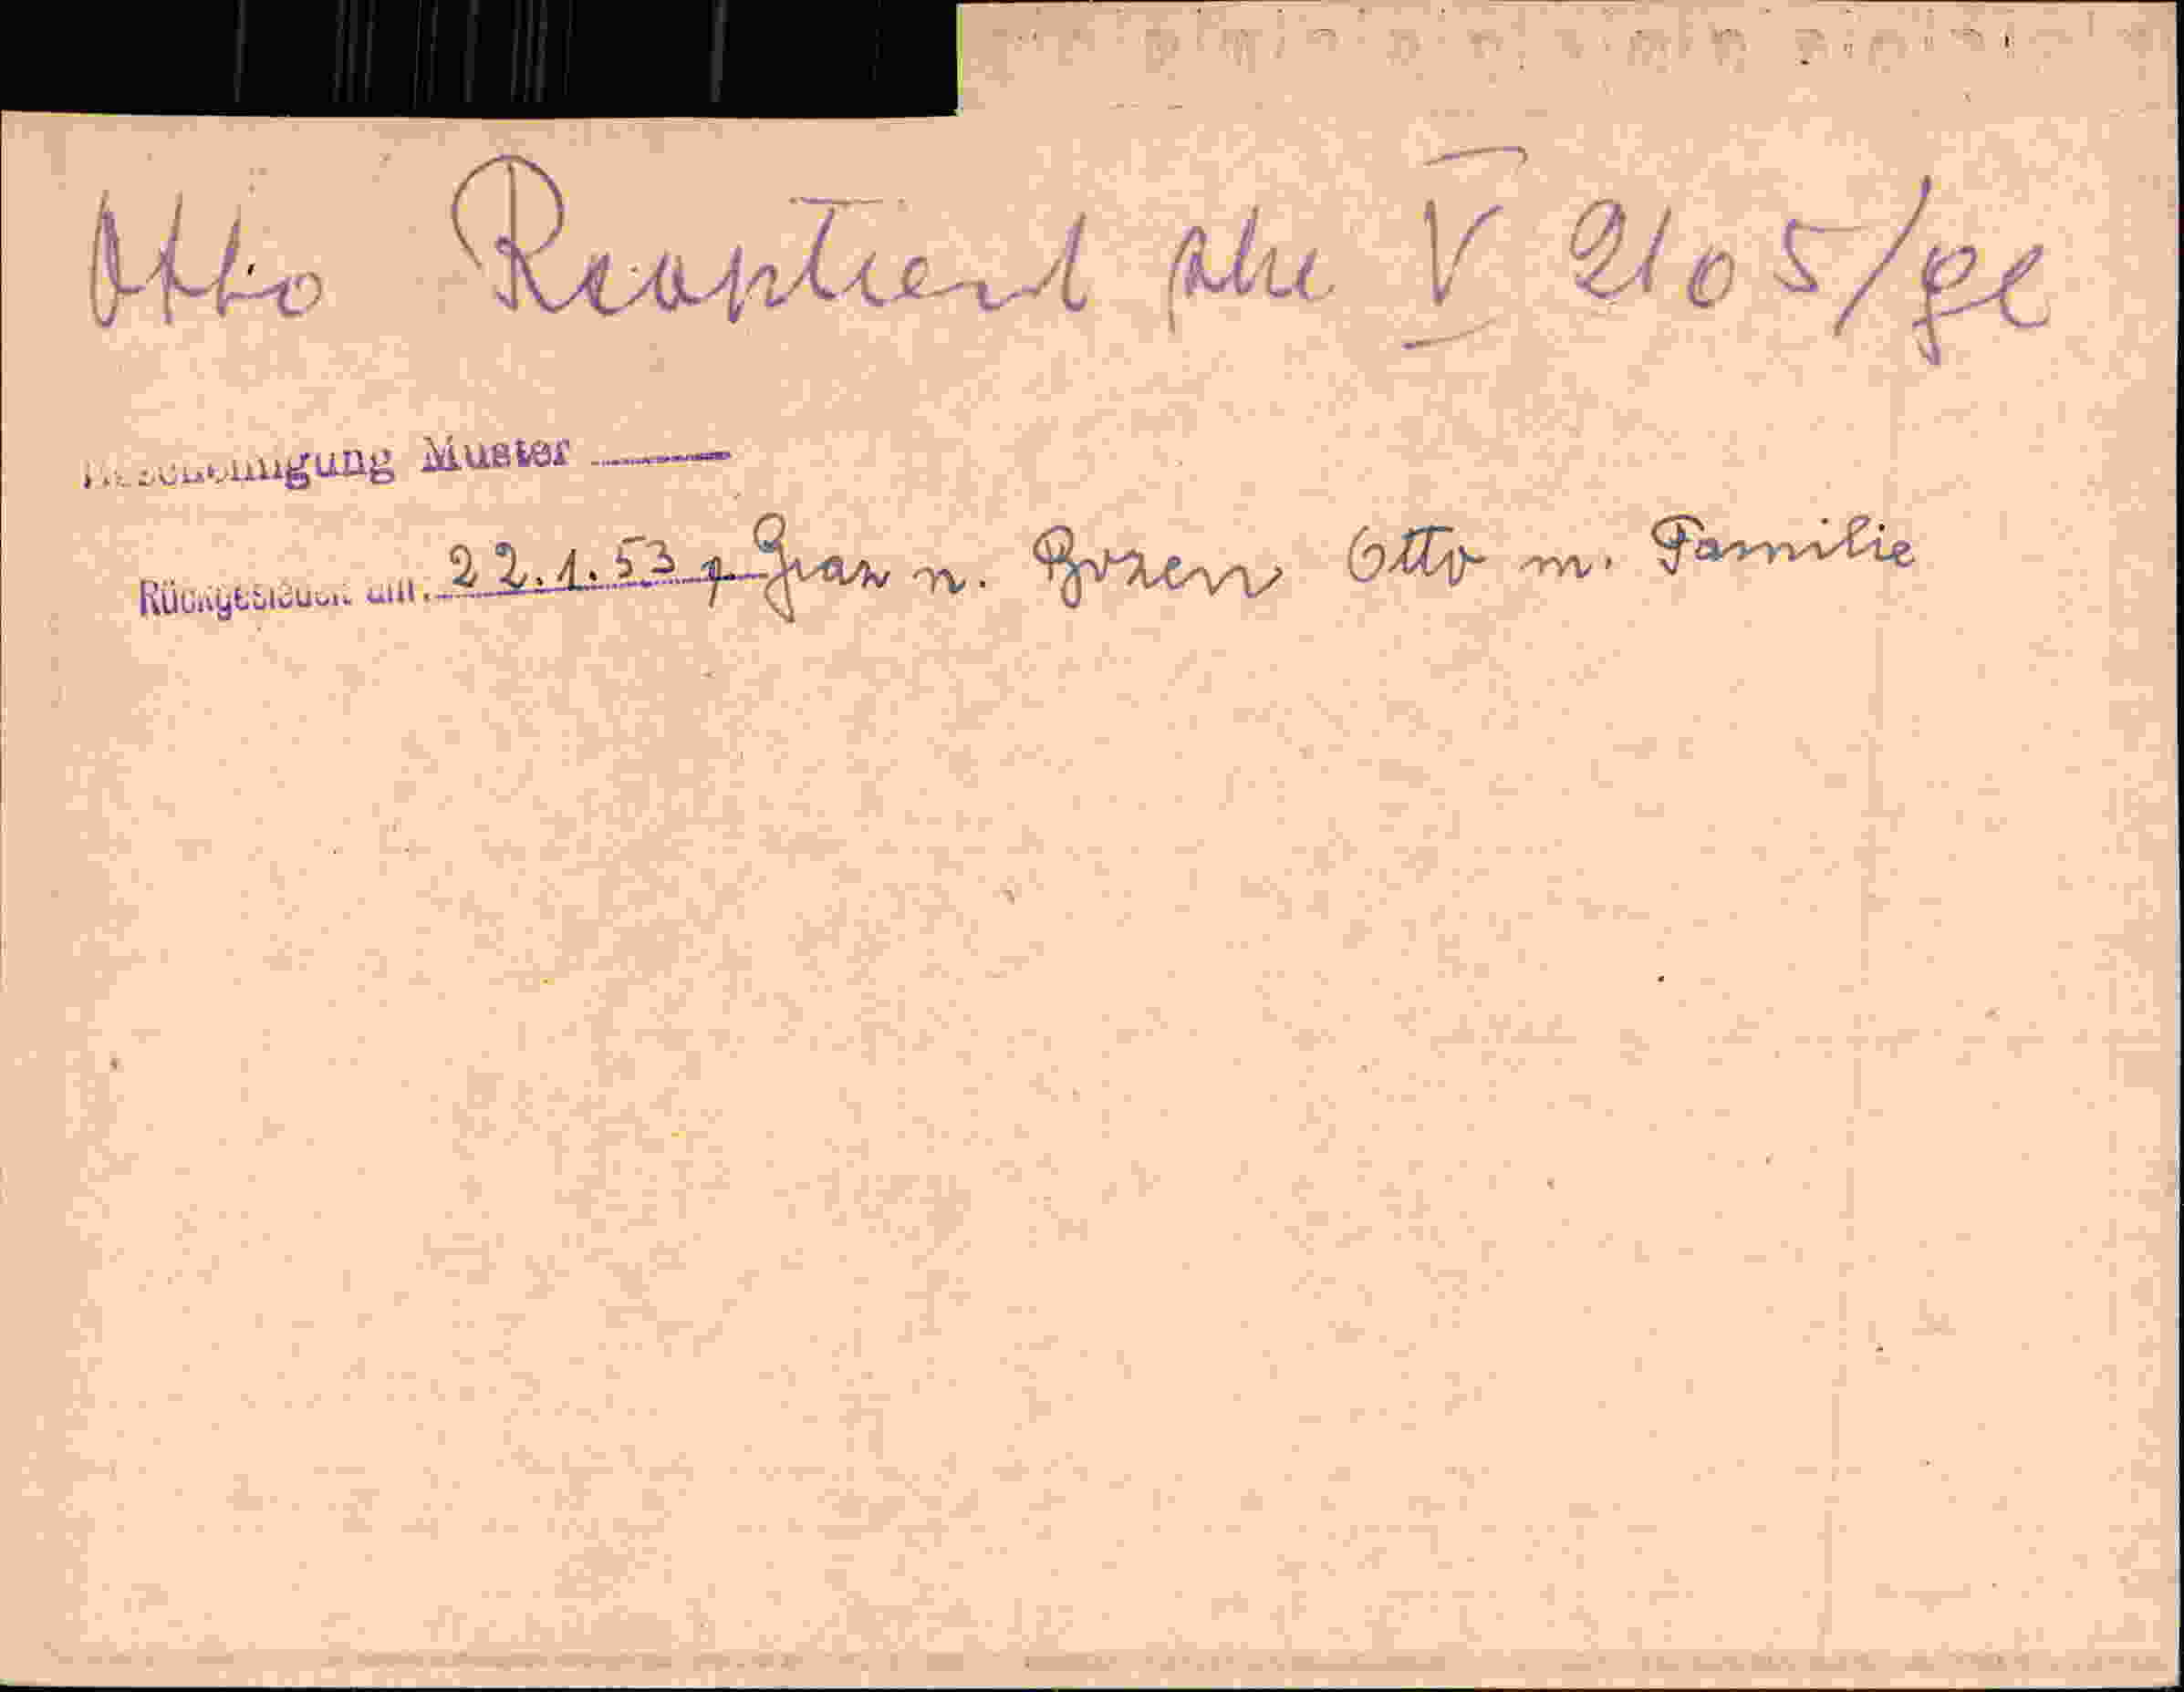 Otto Reoptiert she V 2105/ge
Bescheinigung Muster
Rückgesiedelt am. 22.1.53 v. Graz n. Bozen Otto m. Familie